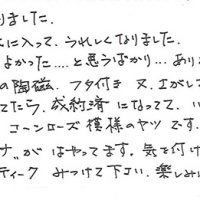 りました.
に入って、うれしくなりました.
よかった....と思うばかり...あり
の陶磁. フタ付き 又、エがして
てたら、成約済 になってて、
コーンローズ模様のヤツ です.
ナ"が はやってます. 気を付け
ティーク みつけて下さい. 楽しみ